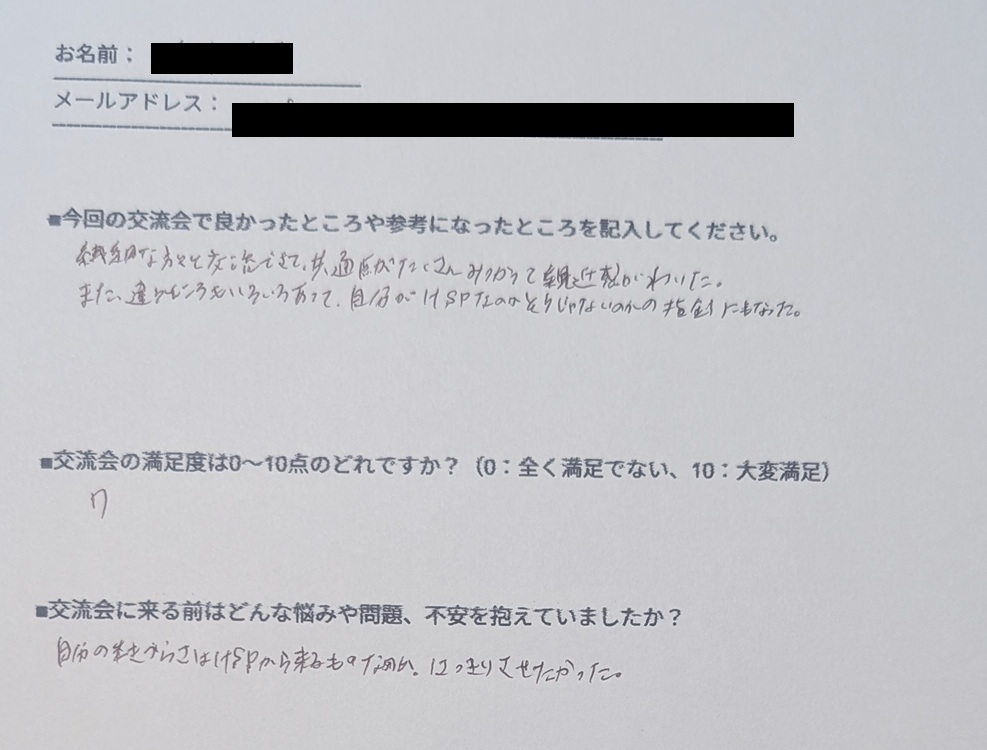 お名前：
メールアドレス：
■今回の交流会で良かったところや参考になったところを記入してください。
繊細な方々と交流できて、共通点がたくさんみつかって親近感がわいた。
また、違うところもいろいろあって、自分がHSPなのかそうじゃないのかの指針にもなった。
■交流会の満足度は0～10点のどれですか？（0：全く満足でない、10：大変満足）
7
■交流会に来る前はどんな悩みや問題、不安を抱えていましたか？
自分の生きづらさはHSPから来るものなのか、はっきりさせたかった。